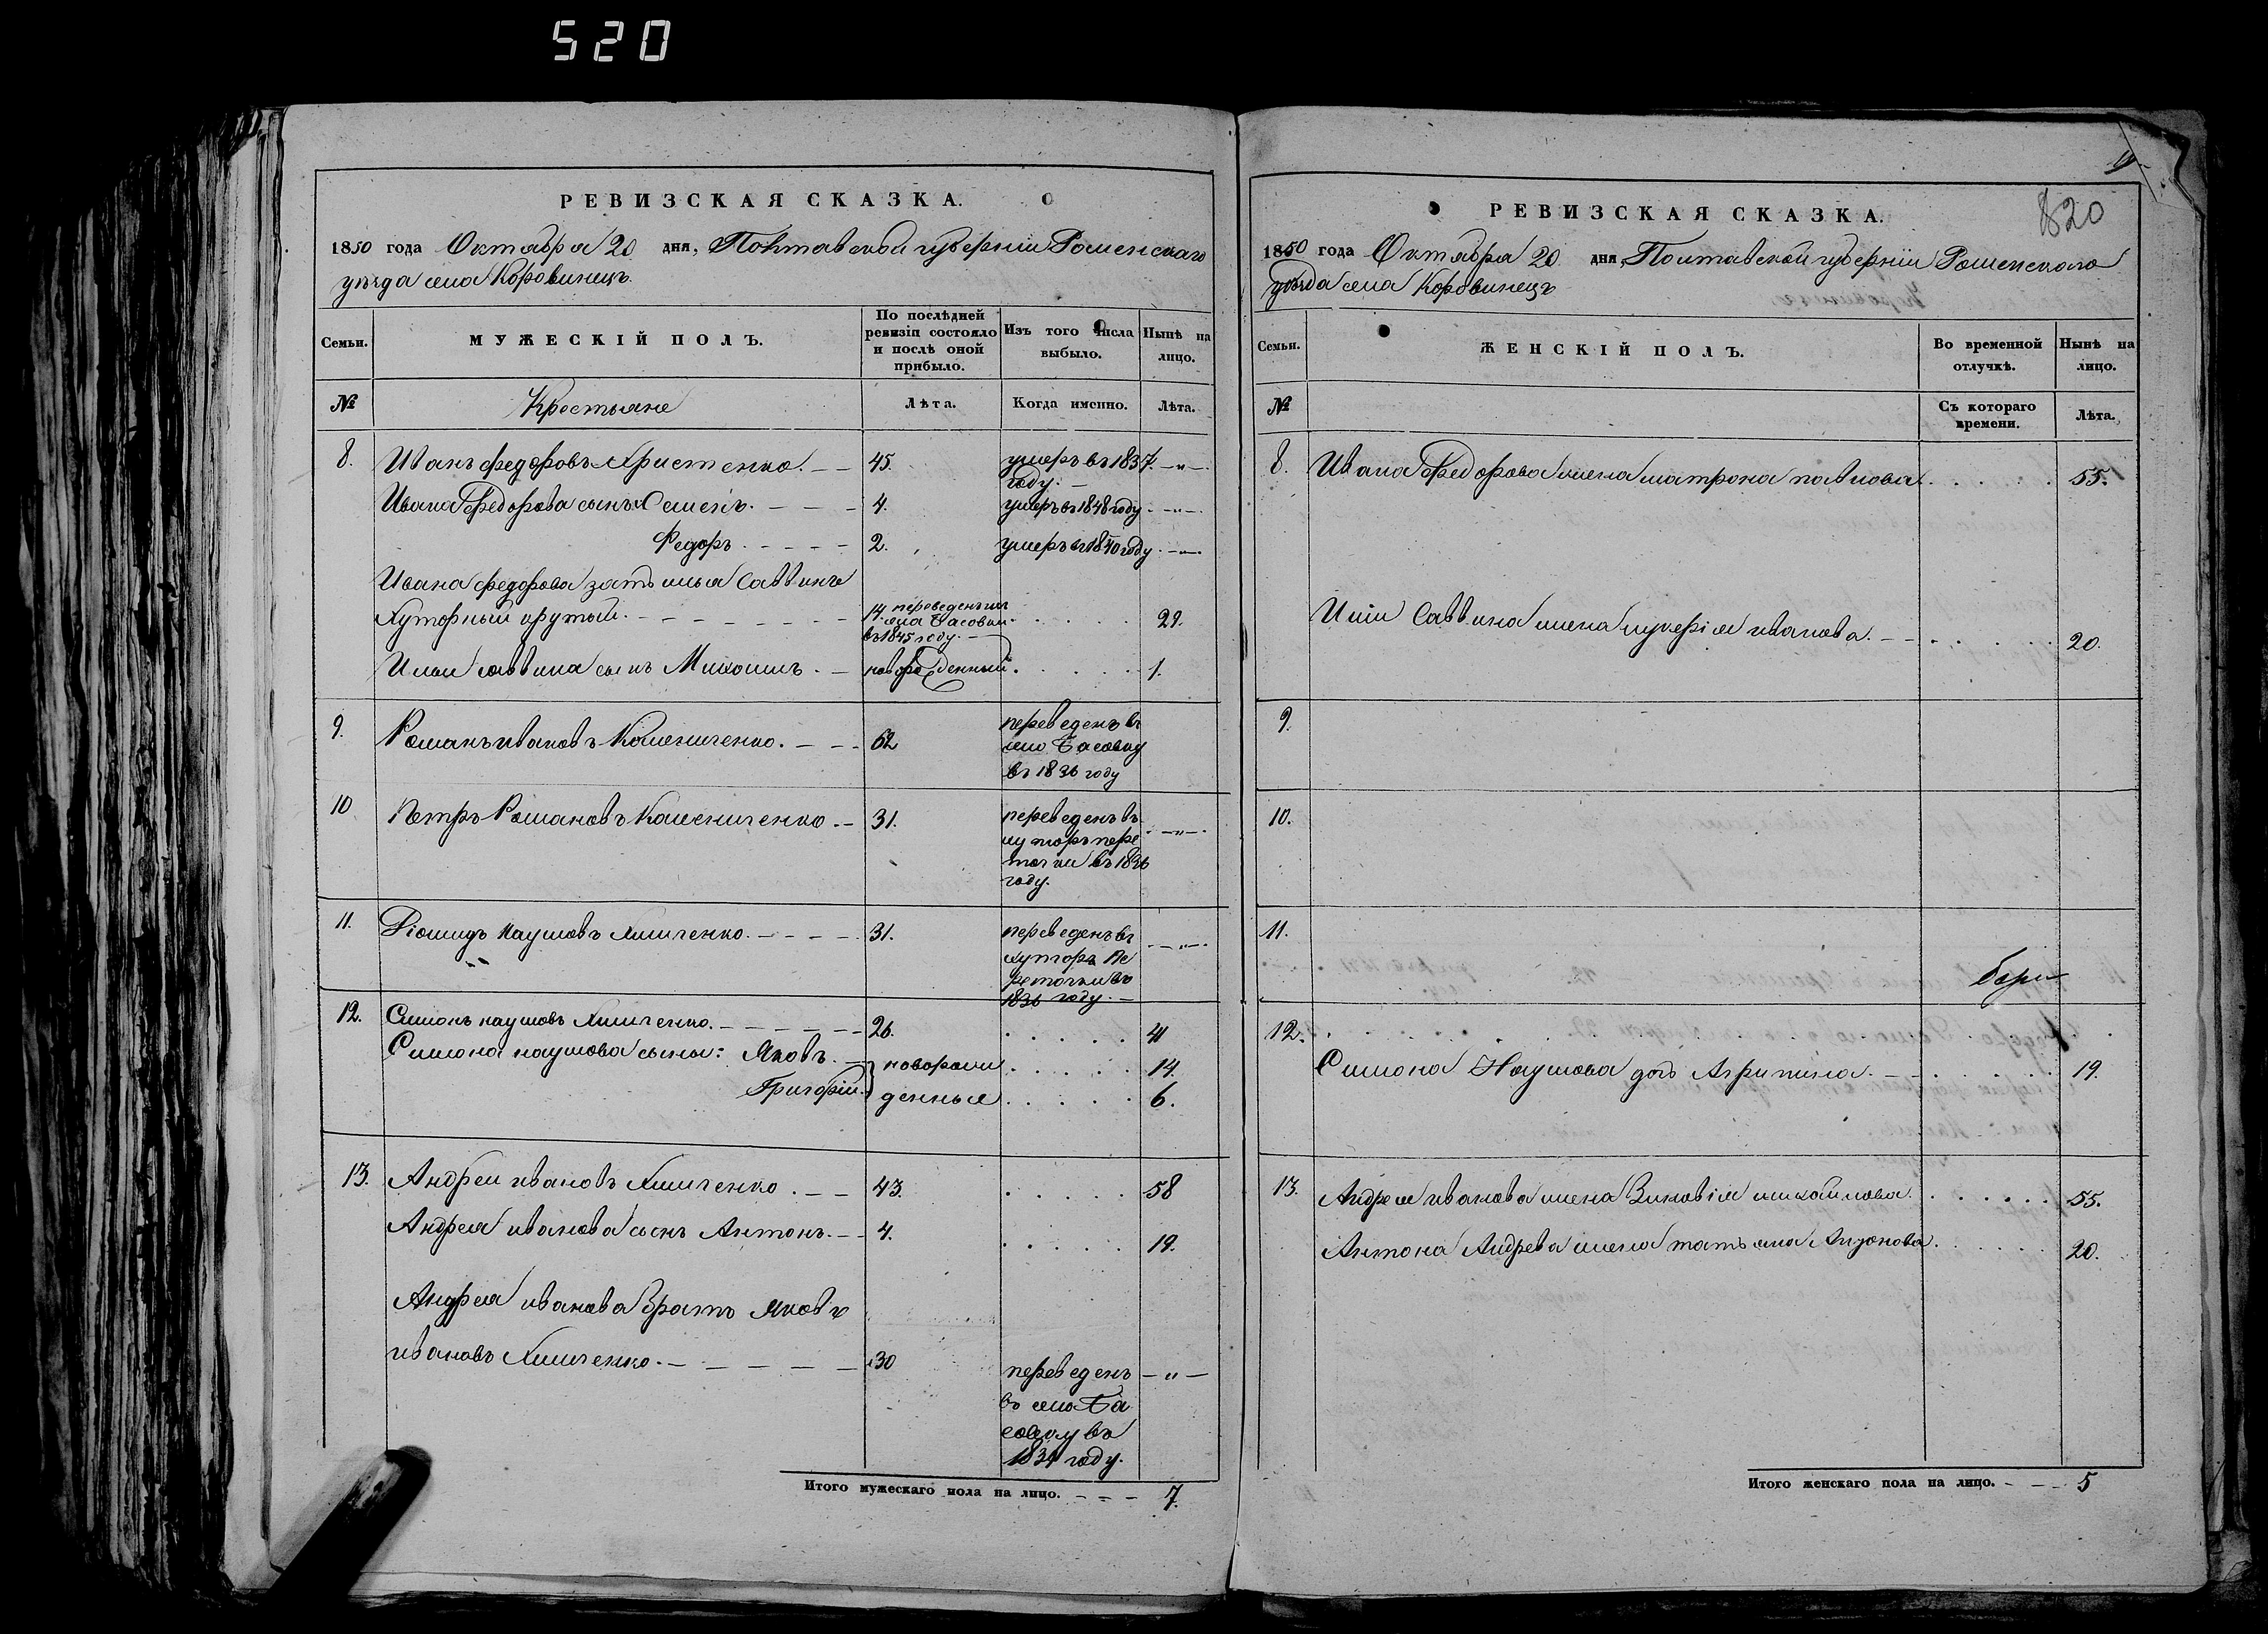 520
РЕВИЗСКАЯ СКАЗКА.
1850 года Октября 20 дня, Полтавской губерніи Роменскаго
уѣзда села Коровинецъ.
Семьи.
МУЖЕСКІЙ ПОЛЪ.
По послѣдней ревизіи состояло и послѣ оной прибыло.
Изъ того числа выбыло.
Нынѣ на лицо.
№
Крестьяне
Лѣта.
Когда именно.
Лѣта.
8. Иванъ Федоровъ Христенко. 45. умеръ въ 1837 году.
Ивана Федорова сынъ Семенъ. 4. умеръ въ 1848 году
Федоръ. 2. умеръ въ 1840 году
Ивана Федорова зять Илья Саввинъ
Хуторный крутый. 14. переведенъ изъ села Басовки въ 1845 году. 29.
Ильи Саввина сынъ новорожденный. 1.
9. Романъ Ивановъ 62 переведенъ въ село Басовку въ 1836 году
10 Петръ Романовъ 31. переведенъ въ хуторъ Переточки въ 1836 году.
11. Наумовъ 31. переведенъ въ хуторъ Переточки въ 1836 году.
12. Симонъ Наумовъ 26. 41
Симона Наумова сыны: Яковъ. новорожденные 14.
Григорій. 6.
13. Андрей Ивановъ 43. 58
Андрея Иванова сынъ Антонъ. 4. 19.
Андрея Иванова братъ Яковъ
Ивановъ 30 переведенъ въ село Басовку въ году.
Итого мужескаго пола на лицо. 7.
820
РЕВИЗСКАЯ СКАЗКА.
1850 года Октября 20 дня, Полтавской губерніи Роменскаго
уѣзда села Коровинецъ
Семьи.
ЖЕНСКІЙ ПОЛЪ.
Во временной отлучкѣ.
Нынѣ на лицо.
№
Съ котораго времени.
Лѣта.
8. Ивана Федорова жена Матрона Павлова. 55.
Ильи Саввина жена Лукерія Иванова. 20.
9.
10.
11.
12.
Симона Наумова дочь Агрипина. 19.
13. Андрея Иванова жена Зиновія Михайлова. 55.
Антона Андрева жена Татьяна 20.
Итого женскаго пола на лицо. 5